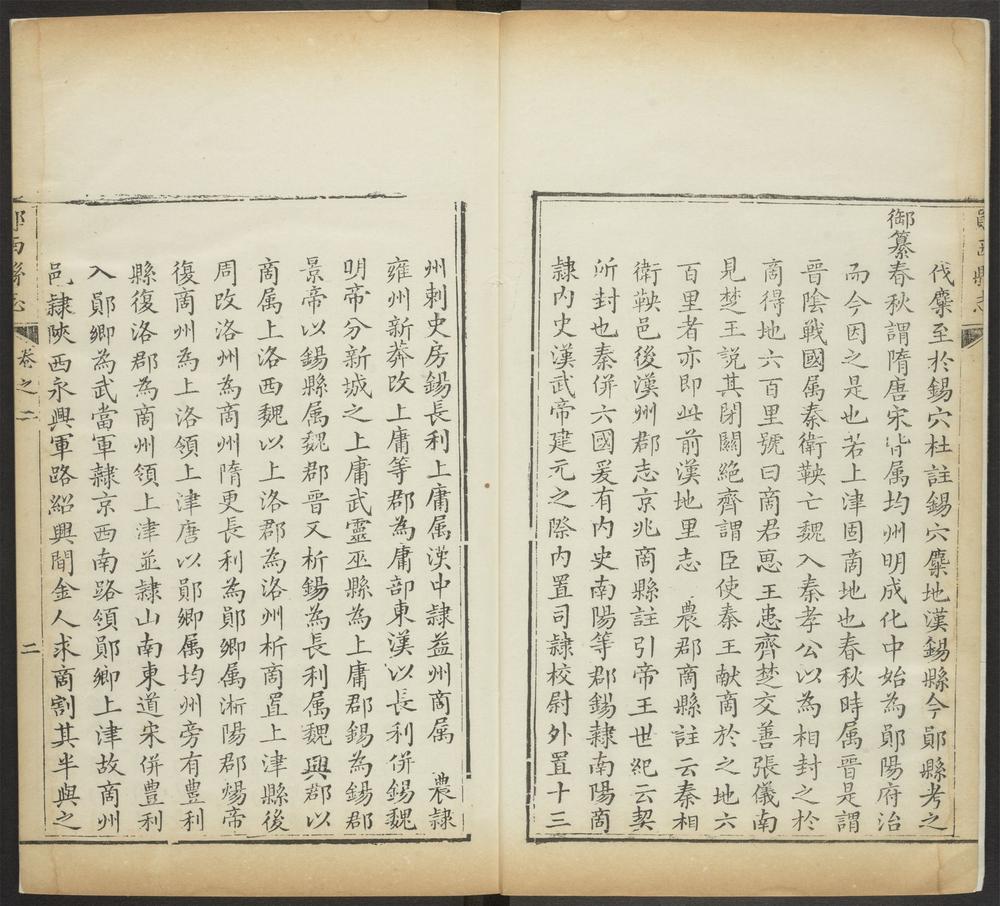 伐麇至於錫穴杜註錫穴麇地漢錫縣今鄖縣考之
御纂春秋謂隋唐宋皆属均州明成化中始為鄖陽府治
而今因之是也若上津固商地也春秋時属晉是謂
晉陰戰國属秦衛鞅亡魏入秦孝公以為相封之於
商得地六百里號曰商君惠王患齊楚交善張儀南
見楚王說其閉關絶齊謂臣使秦王献商於之地六
百里者亦即此前漢地里志 農郡商縣註云秦相
衛鞅邑後漢州郡志京兆商縣註引帝王世紀云契
所封也秦併六國爰有内史南陽等郡錫隸南陽商
隸内史漢武帝建元之際内置司隸校尉外置十三
州刺史房錫長利上庸属漢中隸益州商属 農隸
雍州新莽改上庸等郡為庸部東漢以長利併錫魏
明帝分新城之上庸武靈巫縣為上庸郡錫為錫郡
景帝以錫縣属魏郡晉又析錫為長利属魏興郡以
商属上洛西魏以上洛郡為洛州析商置上津縣後
周改洛州為商州隋更長利為鄖鄉属淅陽郡煬帝
復商州為上洛領上津唐以鄖鄉属均州旁有豊利
縣復洛郡為商州領上津並隸山南東道宋併豊利
入鄖鄉為武當軍隸京西南路領鄖鄉上津故商州
邑隸陝西永興軍路紹興間金人求商割其半與之
鄖西縣志
卷之二
二